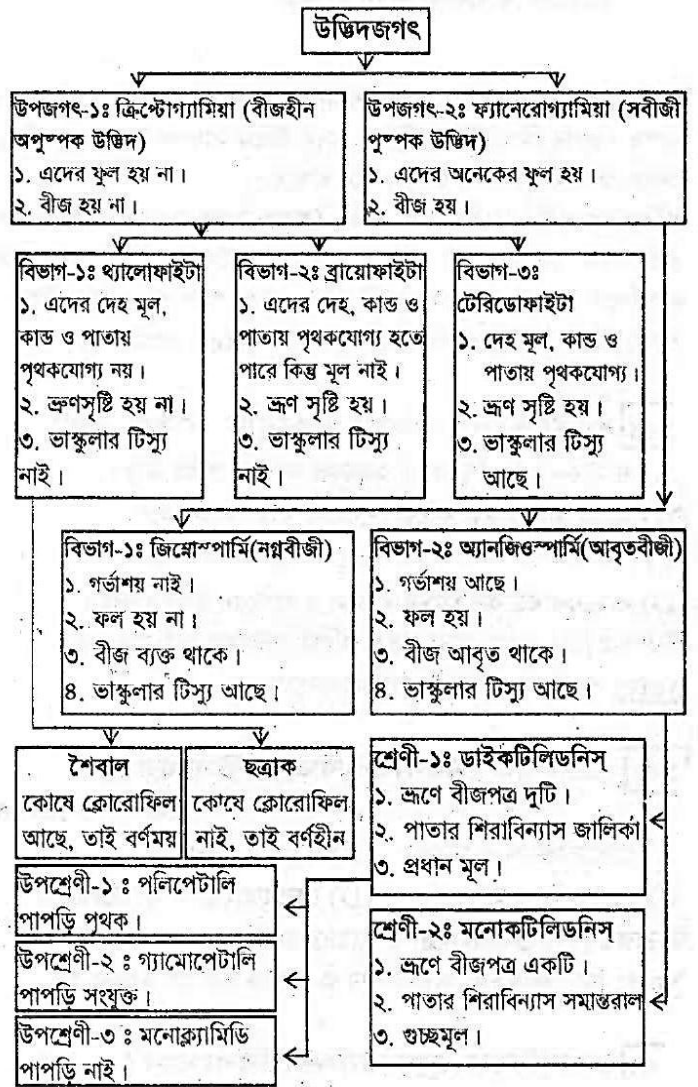 উদ্ভিদজগৎ
উপজগৎ-১ঃ ক্রিপ্টোগ্যামিয়া (বীজহীন
অপুষ্পক উদ্ভিদ)
১. এদের ফুল হয় না।
২. বীজ হয় না।
উপজগৎ-২ঃ ফ্যানেরোগ্যামিয়া (সবীজী
পুষ্পক উদ্ভিদ)
১. এদের অনেকের ফুল হয়।
২. বীজ হয়।
বিভাগ-১ঃ থ্যালোফাইটা
১. এদের দেহ মূল,
কান্ড ও পাতায়
পৃথকযোগ্য নয়।
২. ভ্রুণসৃষ্টি হয় না।
৩. ভাস্কুলার টিস্যু
নাই।
বিভাগ-২ঃ ব্রায়োফাইটা
১. এদের দেহ, কান্ড ও
পাতায় পৃথকযোগ্য হতে
পারে কিন্তু মূল নাই।
২. ভ্রূণ সৃষ্টি হয়।
৩. ভাস্কুলার টিস্যু
নাই।
বিভাগ-৩ঃ
টেরিডোফাইটা
১. দেহ মূল, কান্ড ও
পাতায় পৃথকযোগ্য।
২. ভ্রূণ সৃষ্টি হয়।
৩. ভাস্কুলার টিস্যু
আছে।
বিভাগ-১ঃ জিম্নোস্পার্মি(নগ্নবীজী)
১. গর্ভাশয় নাই।
২. ফল হয় না।
৩. বীজ ব্যক্ত থাকে।
৪. ভাস্কুলার টিস্যু আছে।
বিভাগ-২ঃ অ্যানজিওস্পার্মি(আবৃতবীজী)
১. গর্ভাশয় আছে।
২. ফল হয়।
৩. বীজ আবৃত থাকে।
৪. ভাস্কুলার টিস্যু আছে।
শৈবাল
কোষে ক্লোরোফিল
আছে, তাই বর্ণময়
ছত্রাক
কোষে ক্লোরোফিল
নাই, তাই বর্ণহীন
শ্রেণী-১ঃ ডাইকটিলিডনিস
১. ভ্রূণে বীজপত্র দুটি।
২. পাতার শিরাবিন্যাস জালিকা
৩. প্রধান মূল।
উপশ্রেণী-১ ঃ পলিপেটালি
পাপড়ি পৃথক।
উপশ্রেণী-২ ঃ গ্যামোপেটালি
পাপড়ি সংযুক্ত।
উপশ্রেণী-৩ ঃ মনোক্ল্যামিডি
পাপড়ি নাই।
শ্রেণী-২ঃ মনোকটিলিডনিস
১. ভ্রূণে বীজপত্র একটি।
২. পাতার শিরাবিন্যাস সমান্তরাল
৩. গুচ্ছমূল।